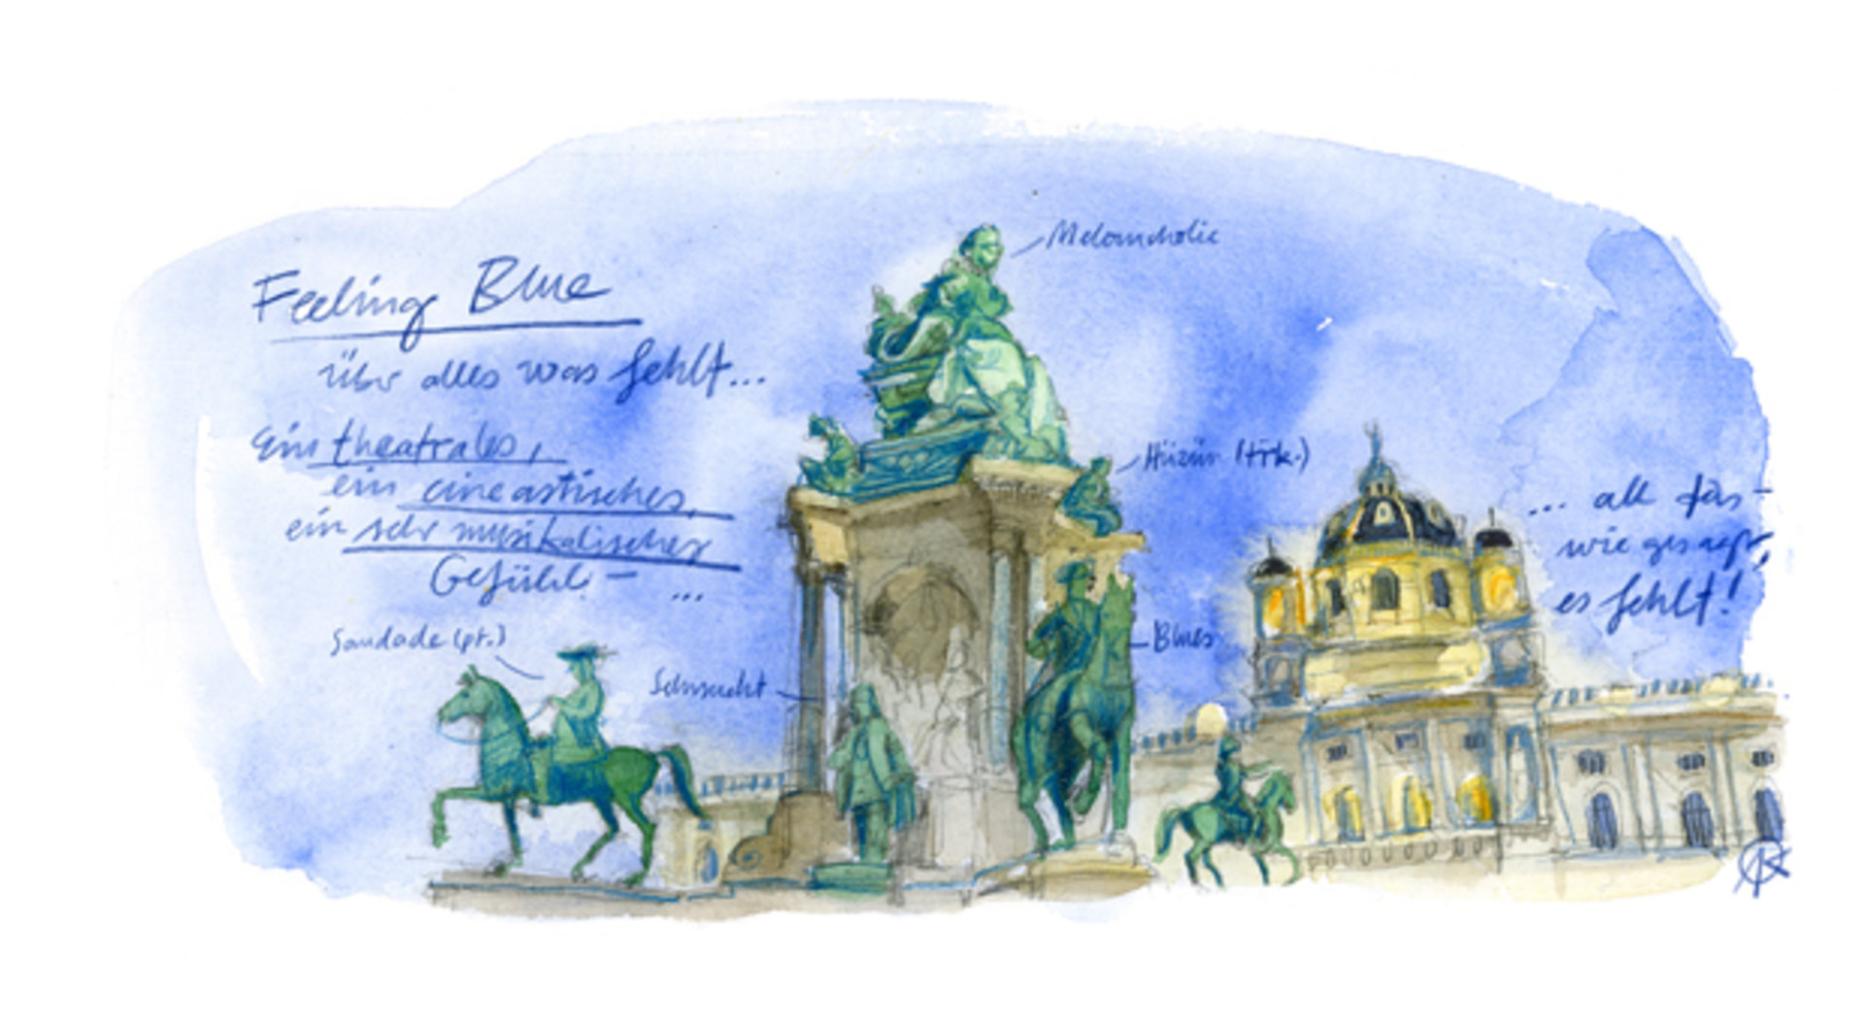 Feeling Blue
über alles was fehlt...
Ein theatrales,
ein cineastisches,
ein sehr musikalisches
Gefühl – ...
Melancholie
Hüzün (türk.)
Saudade (pt.)
Sehnsucht
Blues
... all das –
wie gesagt,
es fehlt!